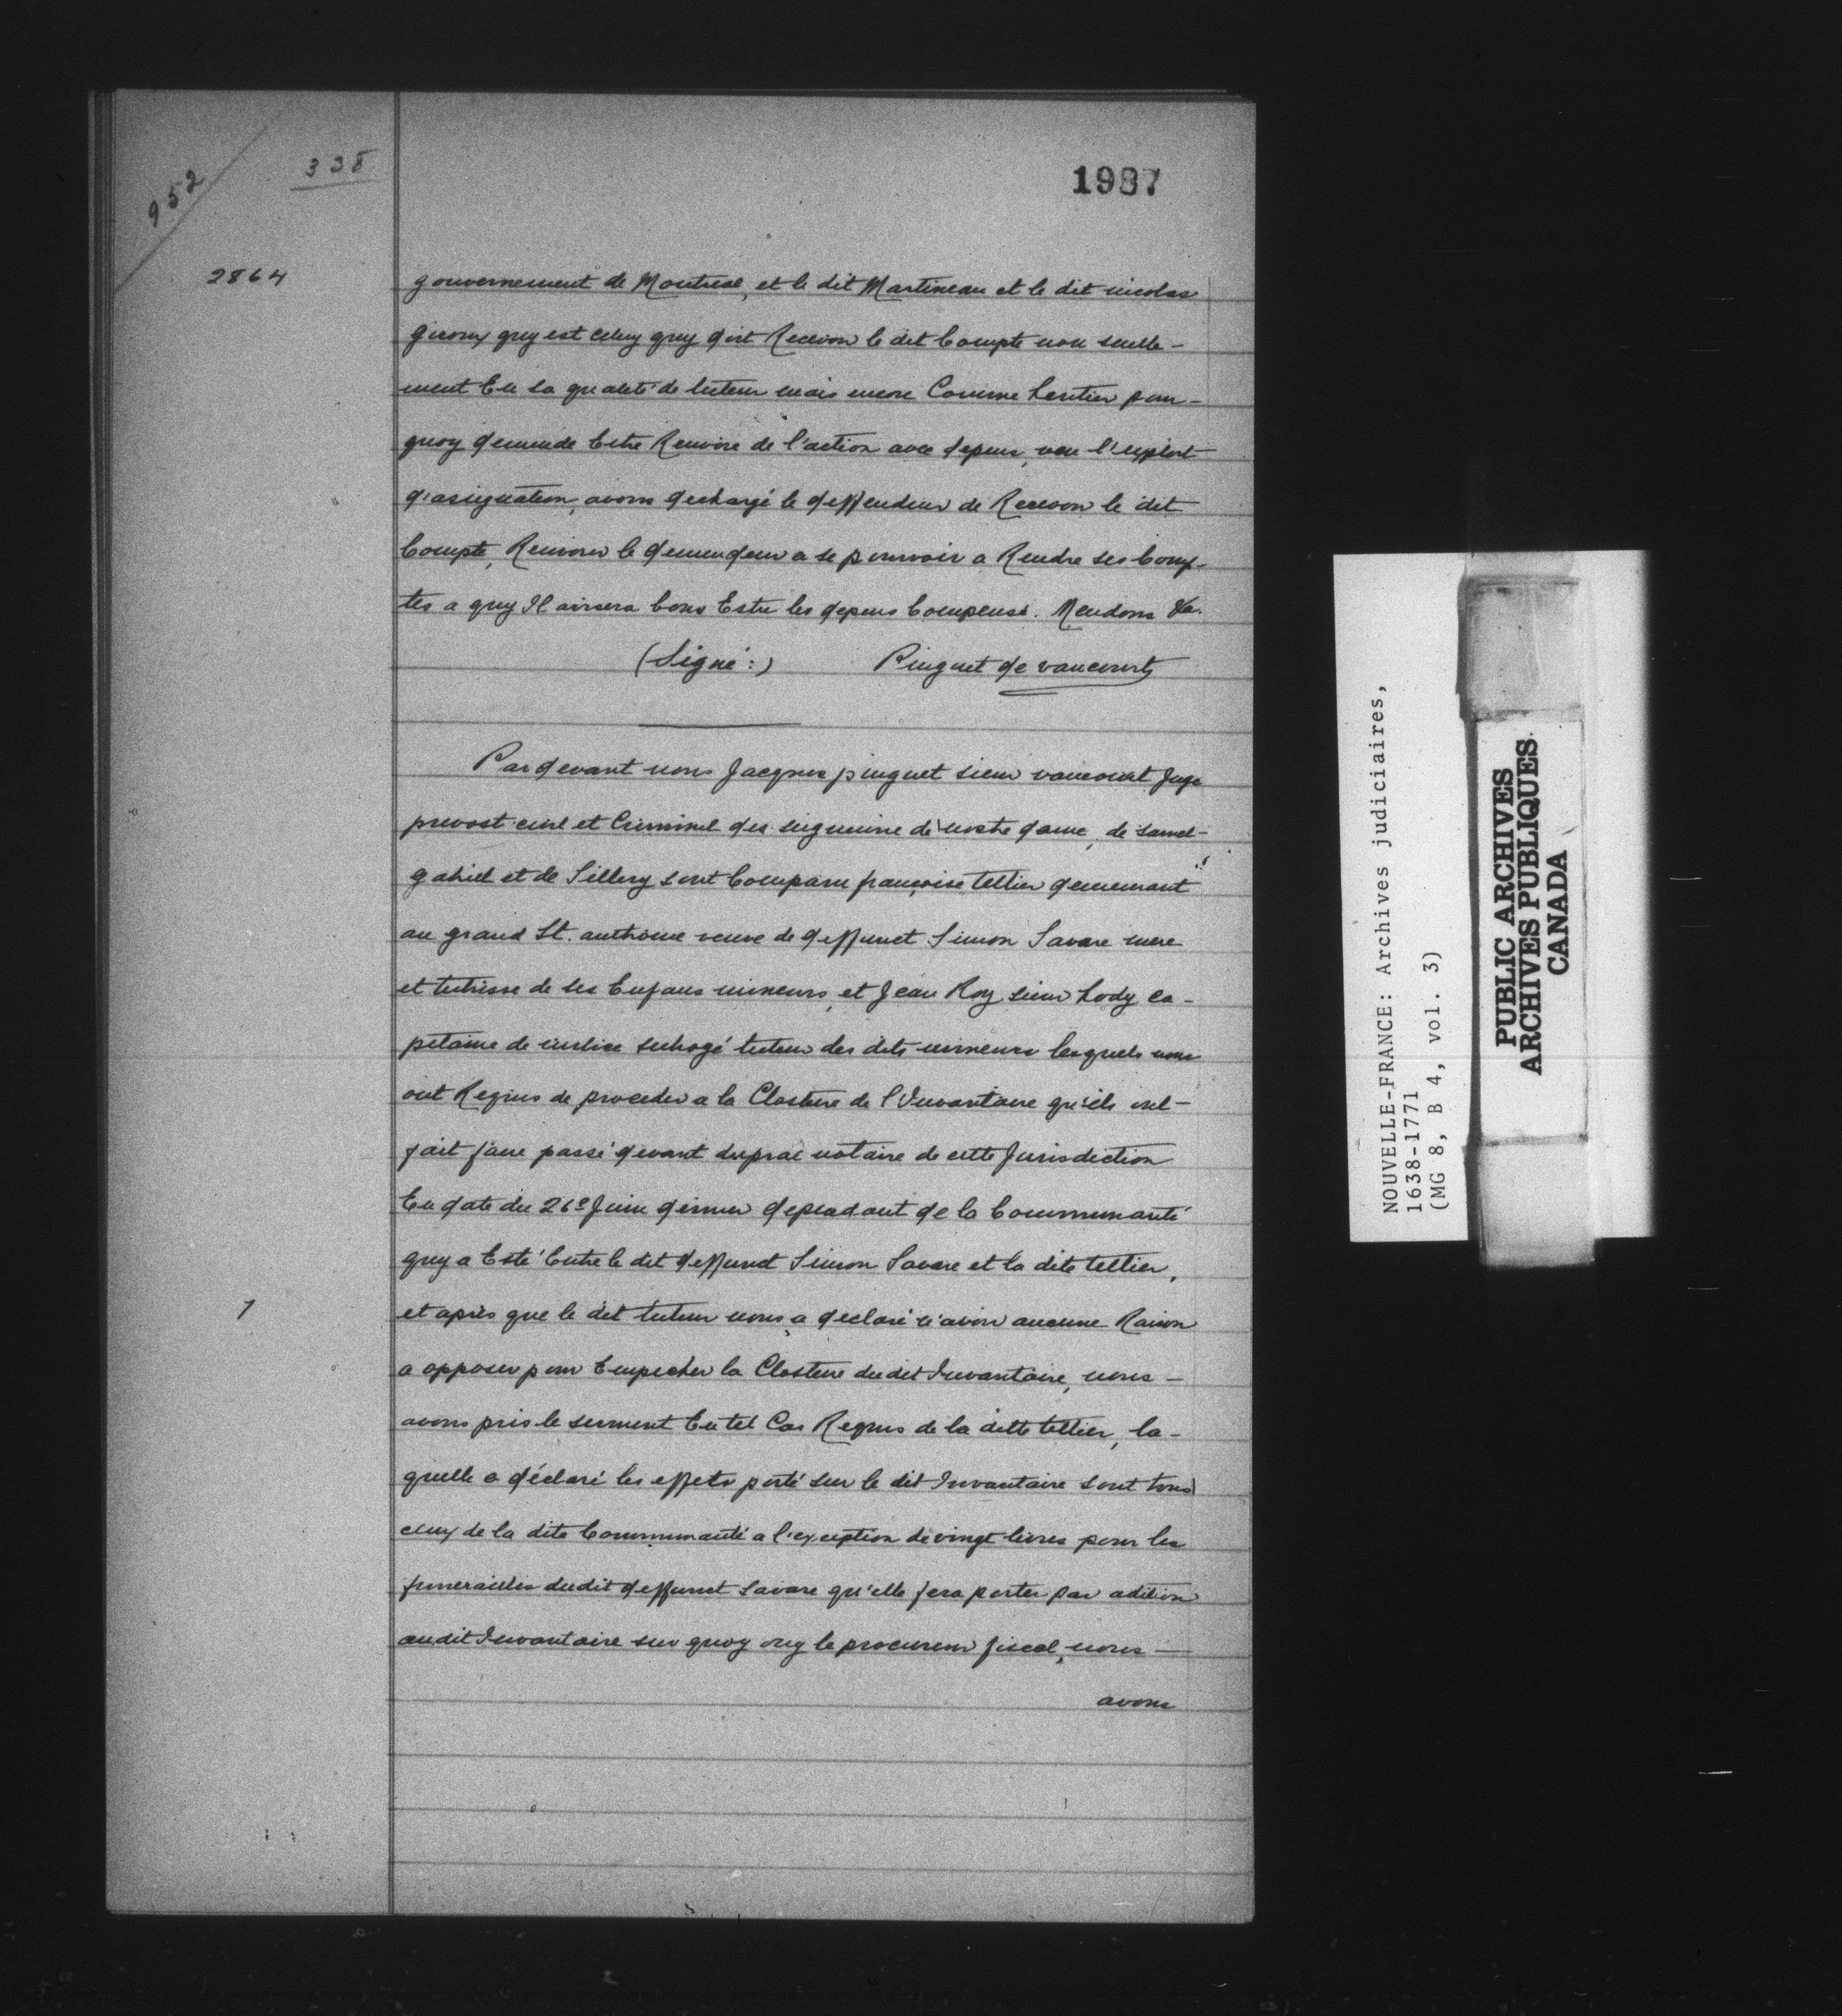 952
338
1987
2864
gouvernement de Montreal, et le dit Martineau et le dit nicolas
giroux quy est celuy quy doit Recevoir le dit Compte non seulle-
ment En sa qualité de tuteur mais encore Comme heritier pour-
quoy demende Estre Renvoie de l'action avec depens, veu l'exploit
d'assignation, avons dechargé le deffendeur de Recevoir le dit
Compte, Renvoier le demendeur a se pourvoir a Rendre ses Comp-
tes a quy Il avisera bons Estre les depens Compensé. Mendons &a.
(Signé:) Pinguet de vaucourt
Par devant nous Jacques pinguet sieur vaucourt Juge
prevost civil et Criminel des seigneurie de nostre dame, de sainct-
gabriel et de Sillery sont Comparu françoise tellier demeurant
au grand St. anthoine veuve de deffunct Simon Savare mere
et tutrisse de ses Enfans mineurs, et Jean Roy sieur Lody ca-
pitaine de milice subrogé tuteur des dits mineurs lesquels nous
ont Requis de proceder a la Closture de l'Inventaire qu'ils ont
fait faire passé devant duprac notaire de cette Jurisdiction
En date du 26e Juin dernier dependant de la Communauté
quy a Esté Entre le dit deffunct Simon Savare et la dite tellier,
1
et après que le dit tuteur nous a declaré n'avoir aucune Raison
a opposer pour Empecher la Closture du dit Inventaire, nous -
avons pris le serment En tel Cas Requis de la ditte tellier, la-
quelle a déclaré les effets porté sur le dit Inventaire sont tous
ceux de la dite Communauté a l'exception de vingt livres pour les
funerailles du dit deffunct Savare qu'elle fera porter par adition
audit Inventaire sur quoy ouy le procureur fiscal, nous -
avons
NOUVELLE-FRANCE: Archives judiciaires,
1638-1771
(MG 8, B 4, vol. 3)
PUBLIC ARCHIVES
ARCHIVES PUBLIQUES
CANADA